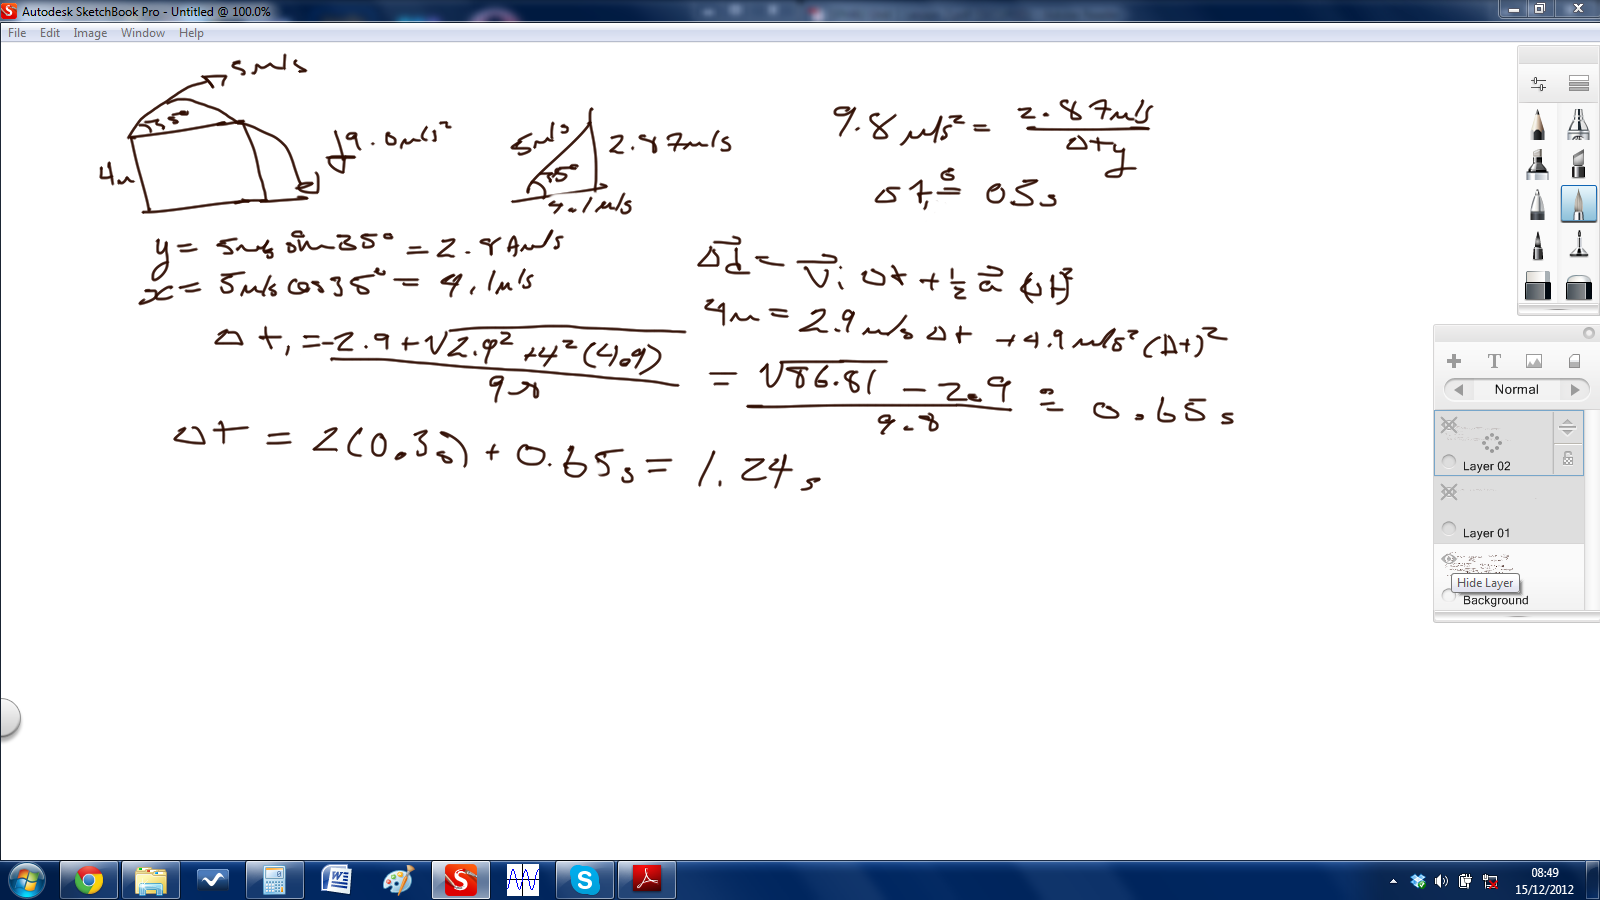 Autodesk SketchBook Pro - Untitled @ 100.0%
File Edit Image Window Help
5m/s
35°
9.0m/s²
4m
5m/s
2.87m/s
35°
4.1m/s
9.8m/s² = 2.87m/s / Δty
Δt₁ = 0.3s
y = 5m/s sin35° = 2.8 m/s
x = 5m/s cos35° = 4.1m/s
Δd = Vi Δt + 1/2 a (Δt)²
4m = 2.9m/s Δt + 4.9m/s² (Δt)²
Δt₁ = -2.9 + √2.9² + 4² (4.9) / 9.8 = √86.81 - 2.9 / 9.8 = 0.65s
Δt = 2(0.3s) + 0.65s = 1.24s
Normal
Layer 02
Layer 01
Hide Layer
Background
08:49
15/12/2012